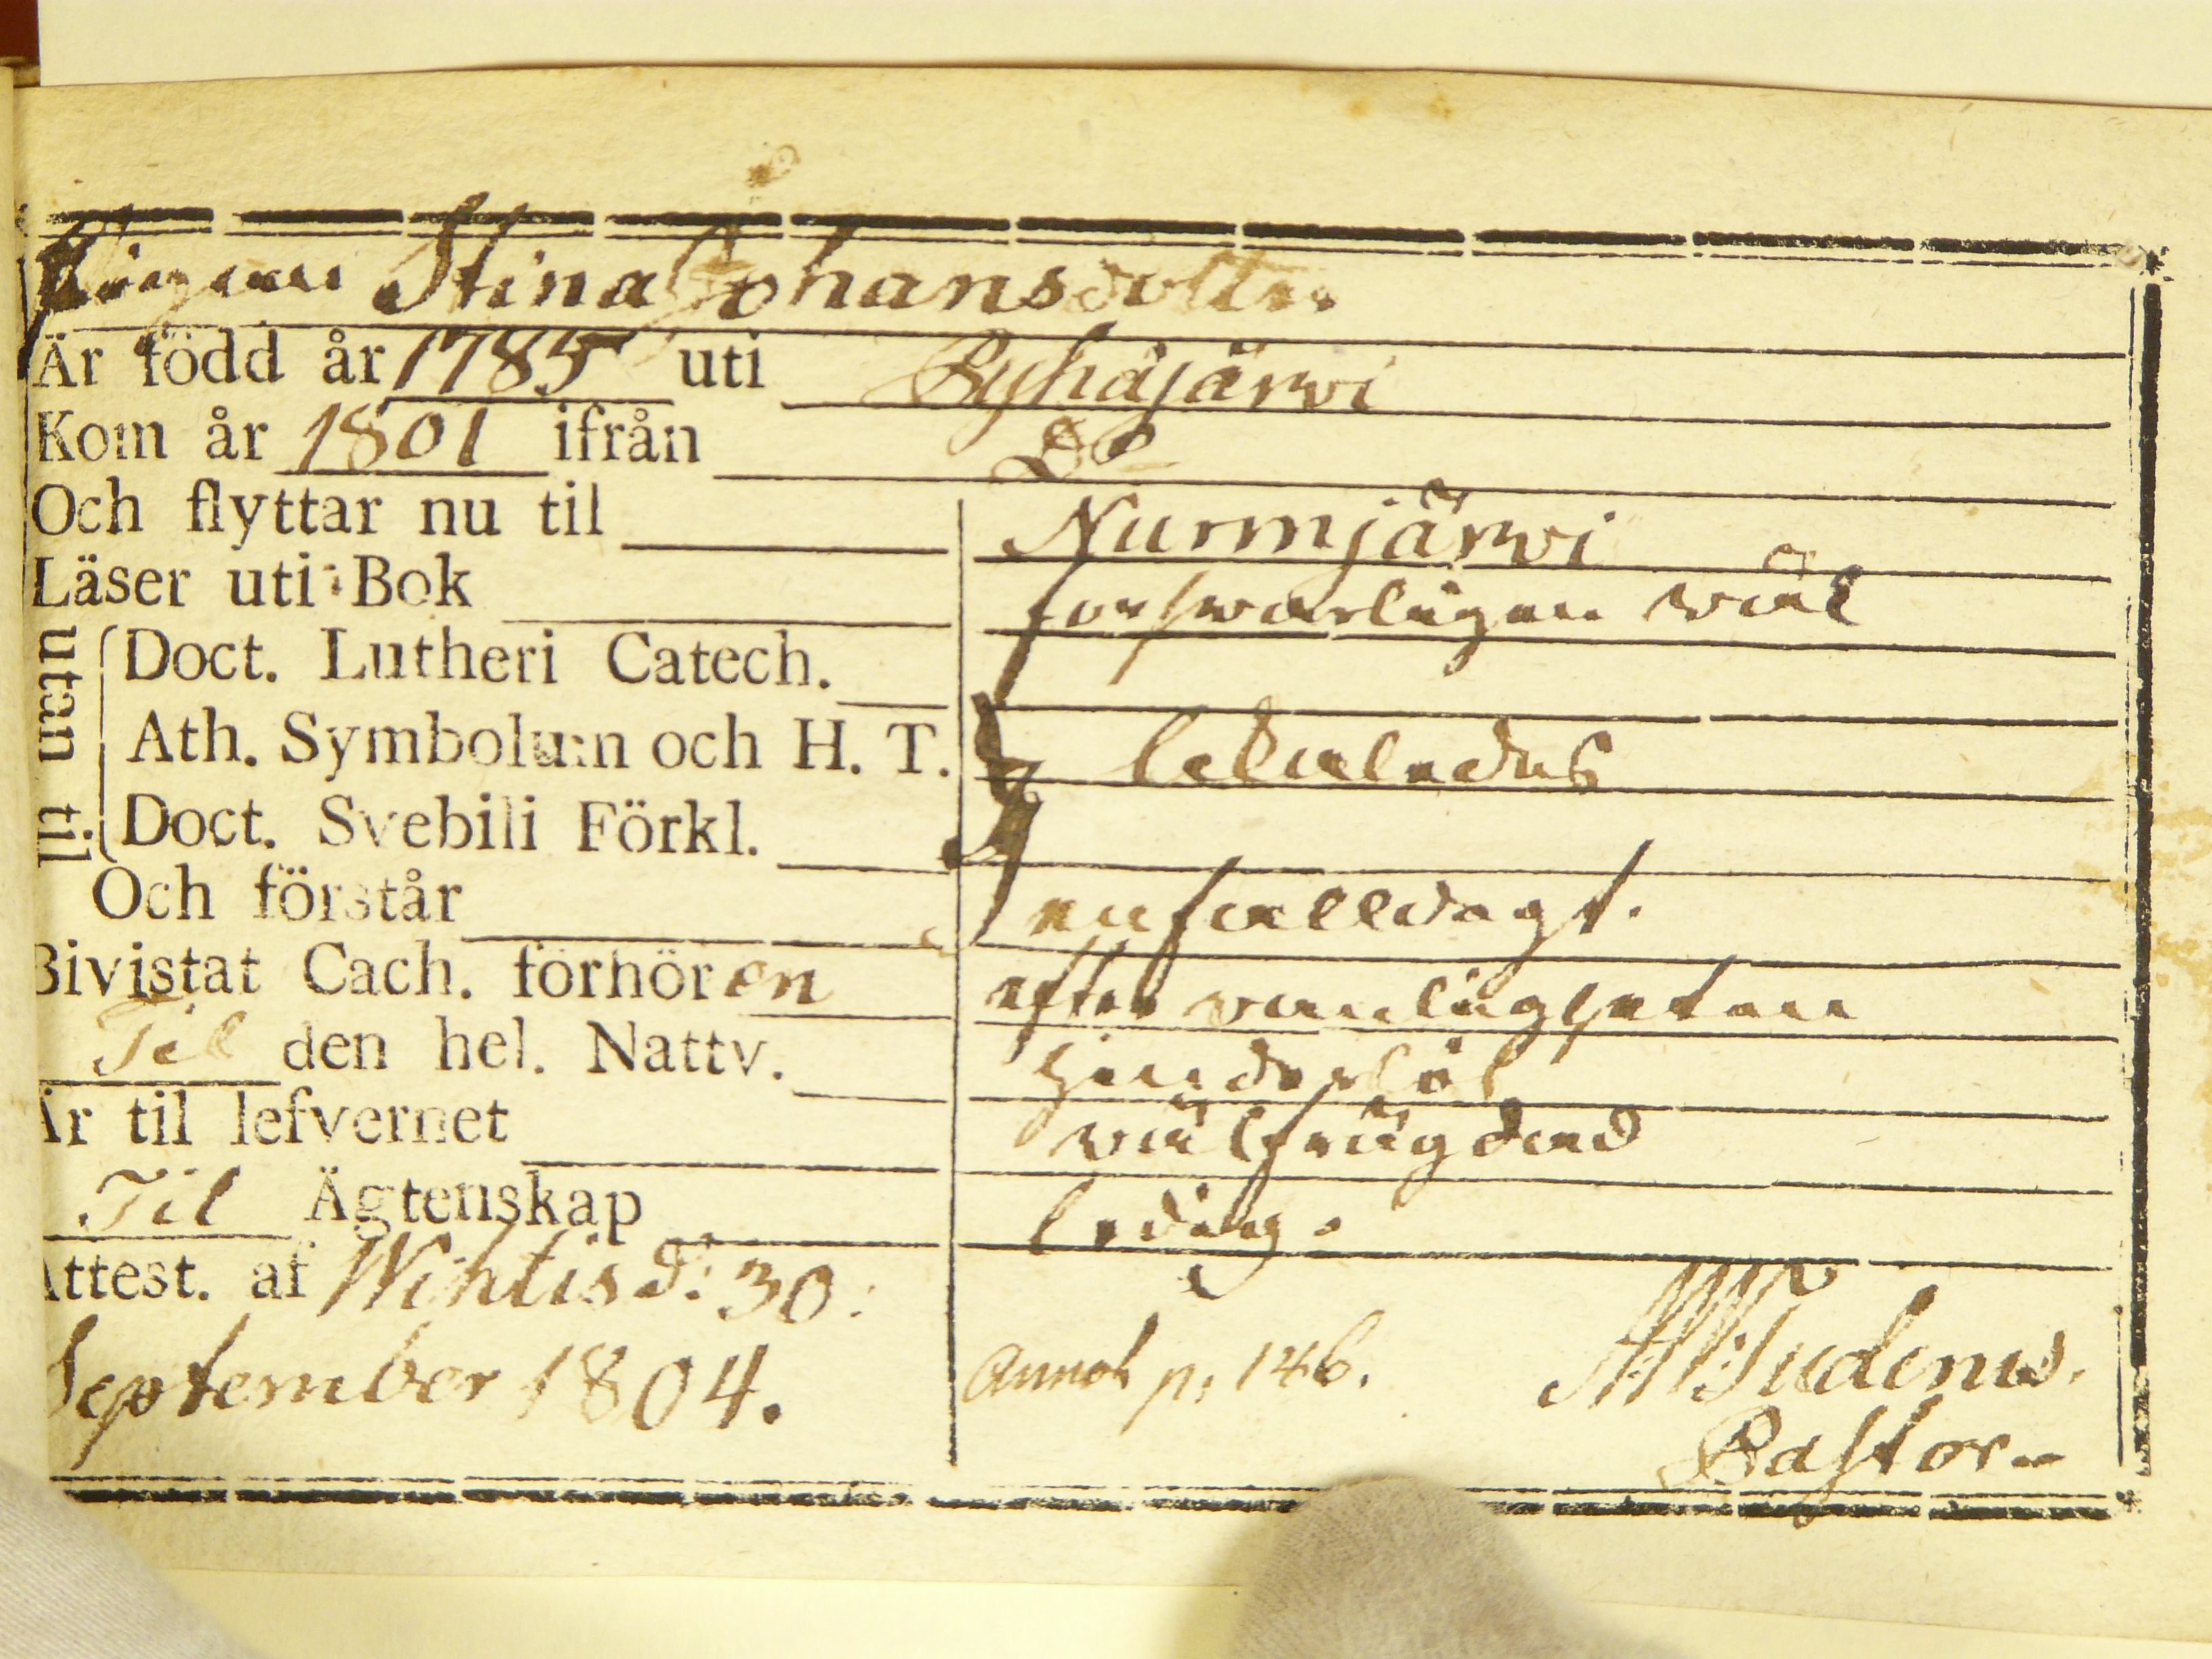 Pigan Stina Johansdotter
Är född år 1785 uti Pyhäjärvi
Kom år 1801 ifrån Do
Och flyttar nu til Nurmjärvi
Läser uti Bok försvarligen väl
utan til
Doct. Lutheri Catech.
Ath. Symbolum och H. T. likaledes
Doct. Svebilii Förkl.
Och förstår enfalldigt.
Bivistat Cach. förhören efter vanligheten
Til den hel. Nattv. hinderlös
Är til lefvernet välfrägdad
Til Ägtenskap ledig.
Attest. af Wihtis d: 30:
September 1804. Annot p. 146.
Pastor